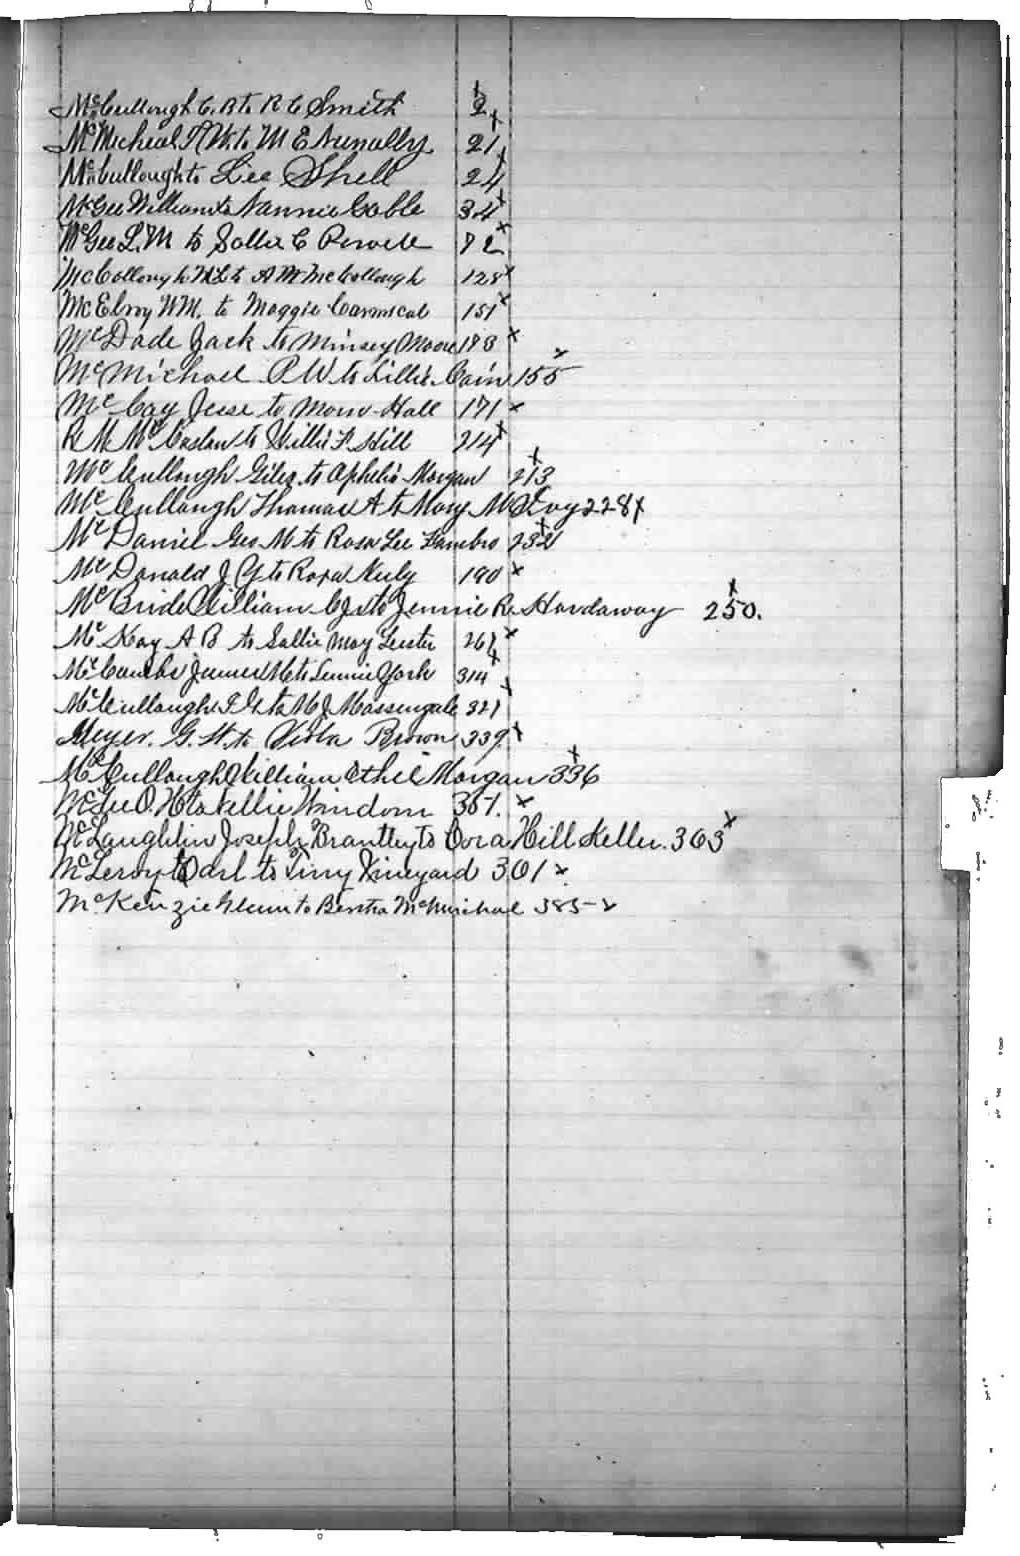 McCullough C. B to R C Smith 2 x
McMicheal T W to M E Nunally 21 x
McCullough to Lee Shell 24 x
McGee William to Nannie Coble 34 x
McGee L. M to Sallie C Powell 72 x
McCollough M L to A M McCollough 128 x
McElroy W M. to Maggie Carmical 151 x
McDade Jack to Minsey Moore 178 x
McMichael P W to Lillie Cain 155 x
McCay Jesse to Hall 171 x
R M McCaslan to Willie F Hill 214 x
McCullough Giles to Ophelia Morgan 213 x
McCullough Thomas A to Mary M Ivy 228 x
McDaniel Geo M to Rosa Lee Fambro 232 x
McDonald J G to Rosa Neely 190 x
McBride William C Jr to Jennie R. Hardaway 250. x
McKay A B to Sallie May Lester 261 x
James M to Lennie York 314 x
McCullough to M J Massengale 321 x
Meyer. G. H. to Viola Brown 339. x
McCullough William Ethel Morgan 336 x
McGee O. H to Nellie Windom 357. x
McLaughlin Joseph Brantley to Cora Hill Keller. 363 x
McLeroy Carl to Tiny Vineyard 361 x
McKenzie Glenn to Bertha McMichael 385 - x